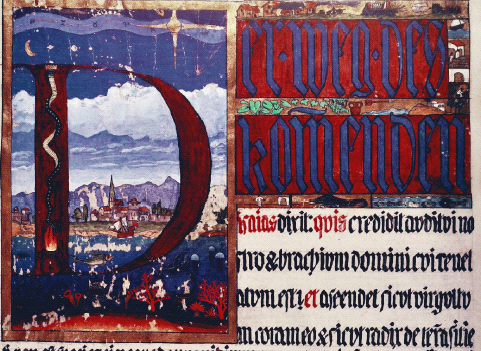 Der · weg · des
kom̄enden
isaias dixit: quis credidit auditui no
stro & brachium domini cui revel
atum est? et ascendet sicut virgultu
m coram eo & sicut radix de terra sitie